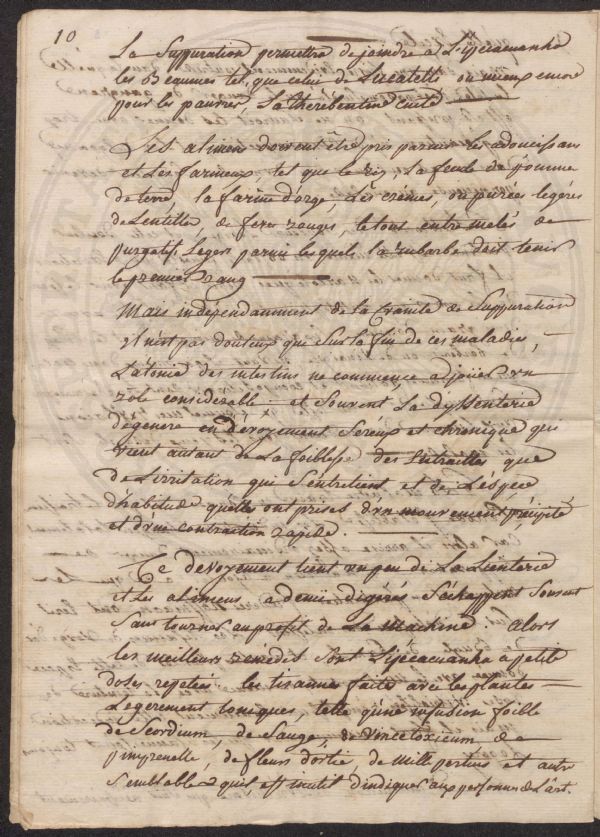 10
La Suppuration permettra de joindre a L'ipecacuanha
les Baumes tel que celui de Lucatelli ou mieux encore
pour les pauvres, La therebentine cuite
Les alimens doivent être pris parmi les adoucissans
et Les farineux, tel que le ris, La fecule de pomme
de terre, la farine d'orge, Les crêmes, ou purées legéres
de Lentilles, de feves rouges, le tout entre melés de
purgatifs Legers parmi lesquels la rubarbe doit tenir
le premier rang
Mais indépendamment de la Crainte de Suppuration
il n'est pas douteux que Sur la fin de ces maladies,
L'atonie des intestins ne commence a joüer un
role considerable et Souvent La dyssenterie
degenere en dévoyement Sereux et chronique qui
vient autant de La foiblesse des Entrailles que
de L'irritation qui S'entretient et de L'éspece
d'habitude quelles ont prises d'un mouvement précipité
et d'une contraction rapide.
Ce devoyement tient un peu de La Lienterie
et Les alimens a demi digérés S'échappent Souvent
Sans tourner au profit de La Machine. alors
les meilleurs remédes Sont L'ipecacuanha a petite
doses repetées les tisannes faites avec les plantes
Legerement toniques, telle qu'une infusion foible
de Scordium, de Sauge, de vincetoxicum, de
pimprenelle, de fleurs d'ortie, de Mille pertuis et autre
Semblable qu'il est inutil d'indiquer aux personnes de L'art.